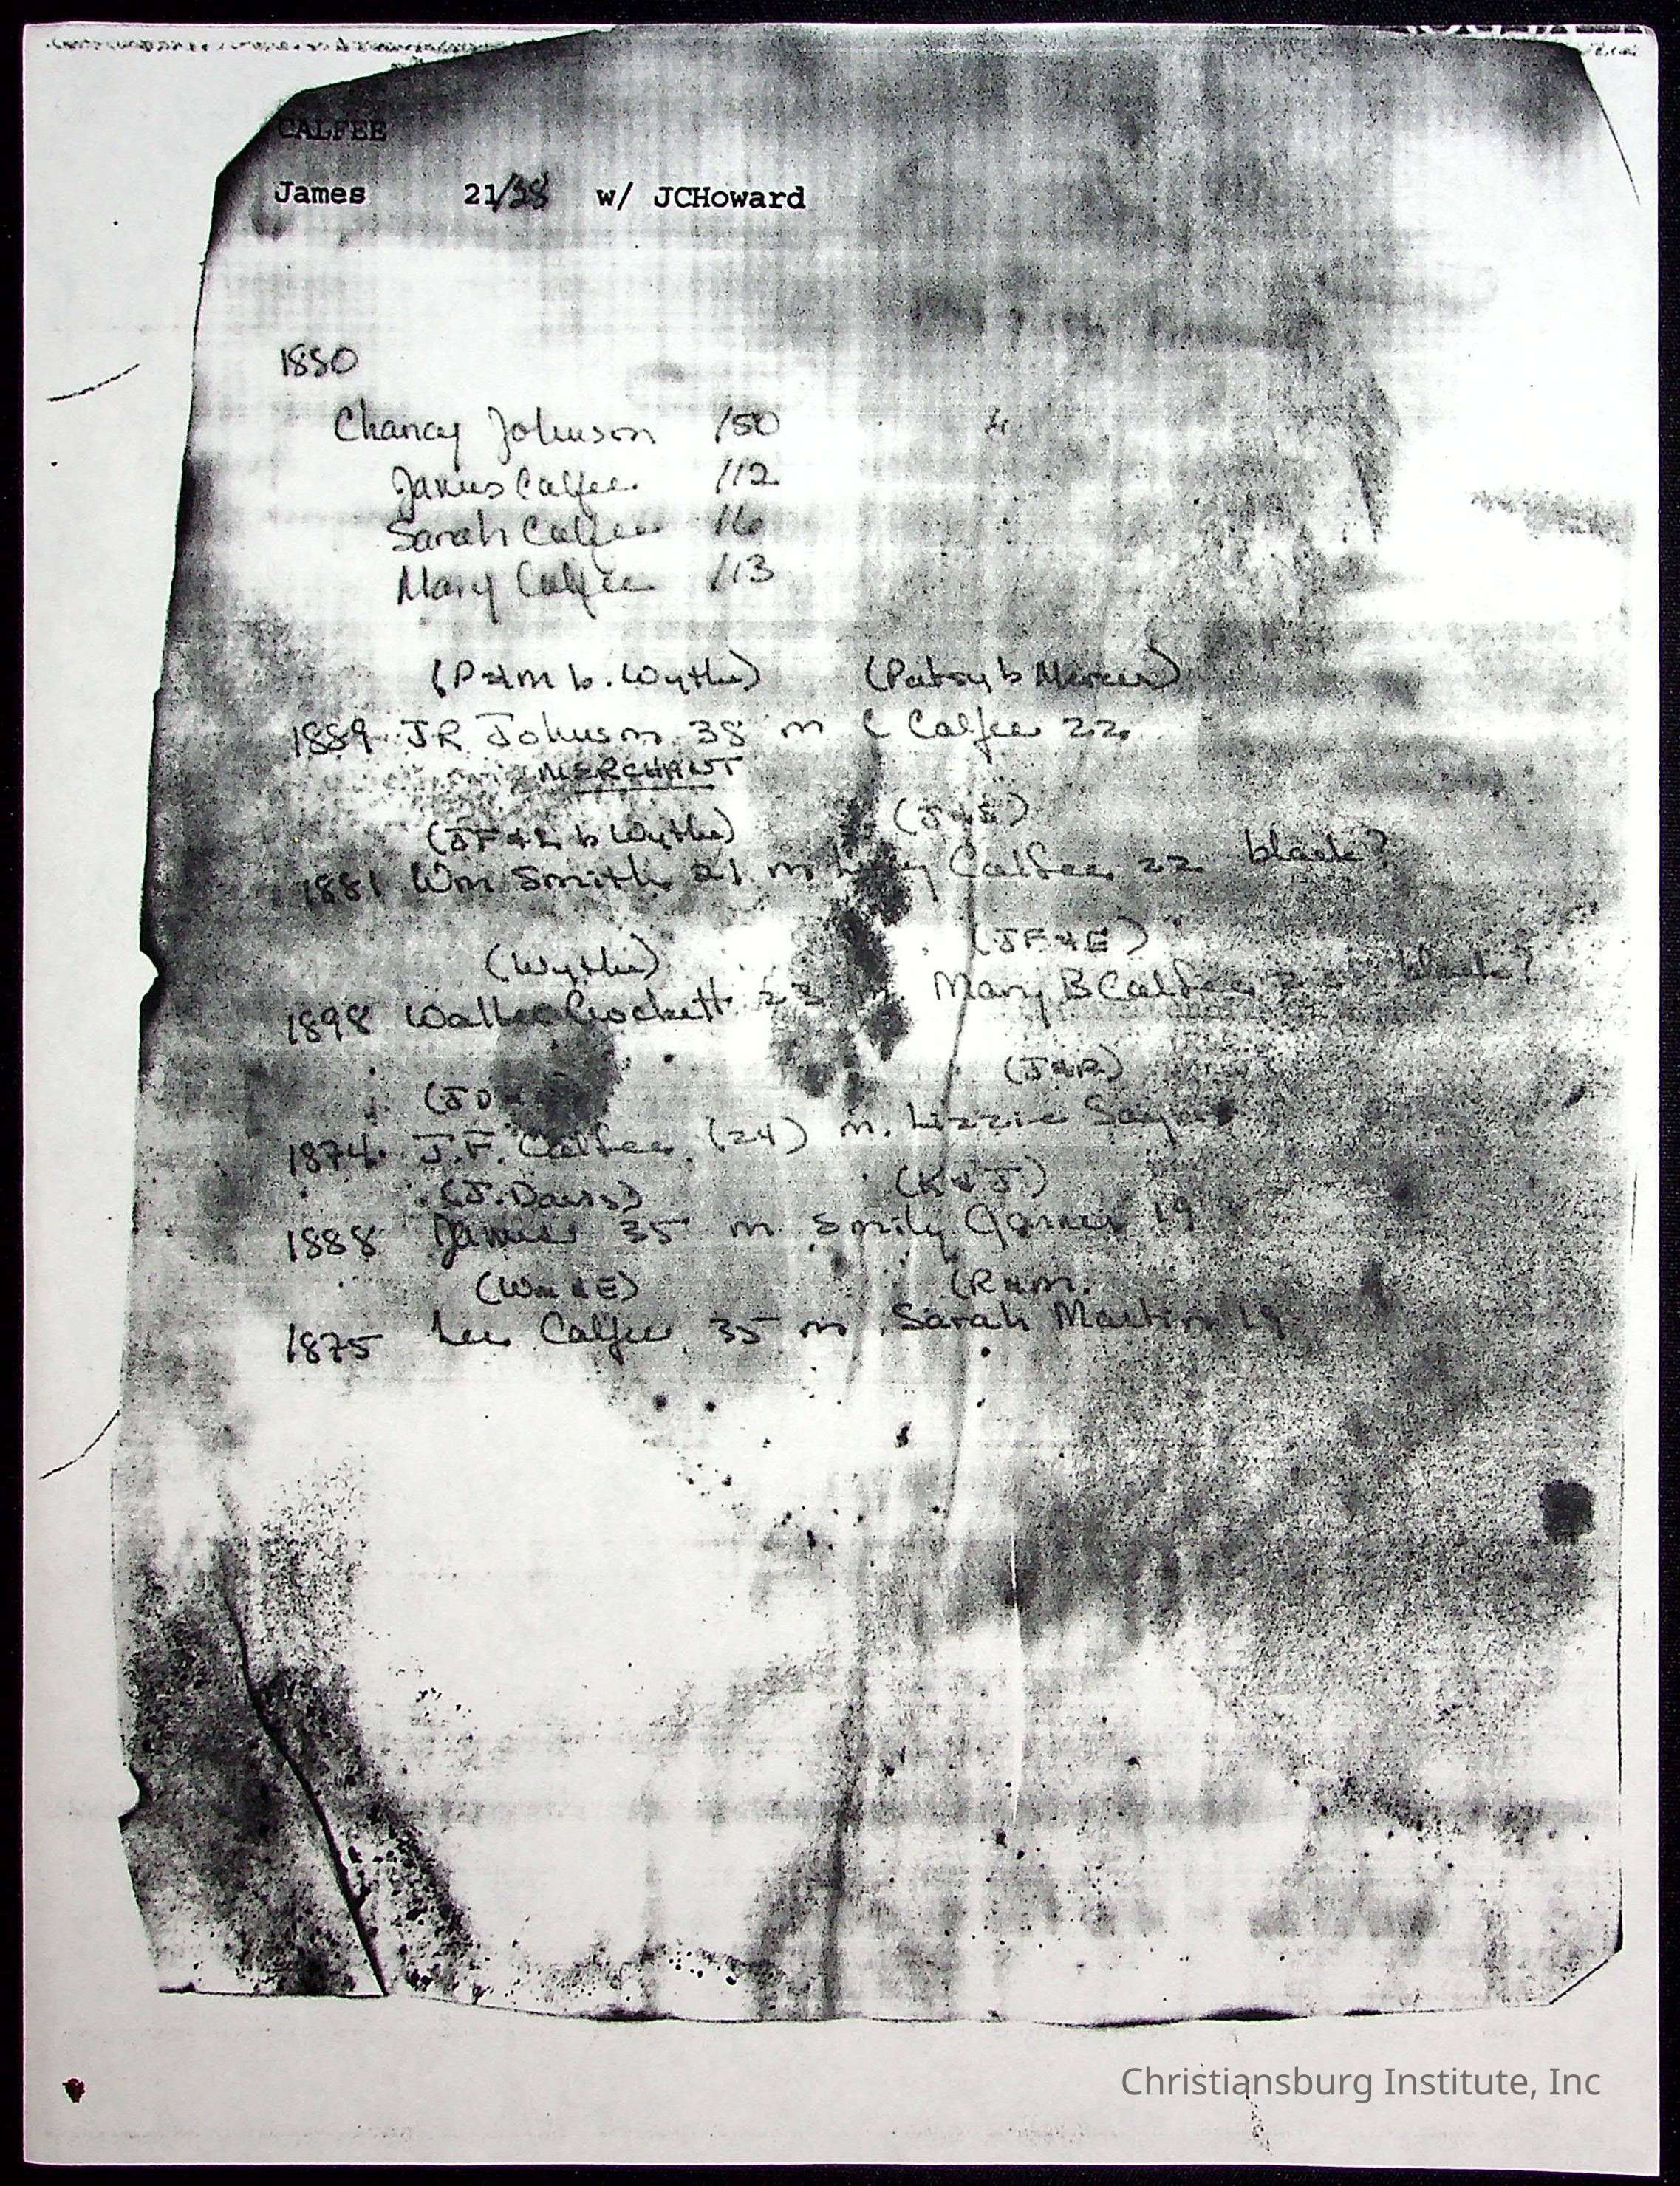 CALFEE
James 21/38 w/ JCHoward
1880
Chancy Johnson /50
James Calfee /12
Sarah Calfee 16
Mary Calfee /13
(P&M b. Wythe) (Patsy b Mercer)
1889 JR Johnson 38 m C Calfee 22
MERCHANT
(JF&L b Wythe) (J&E)
1881 Wm Smith 21 m Calfee 22 black?
(Wythe) (JF&E)
1898 Crockett 22 Mary B Calfee black?
(JD (J&R)
1874 J.F. Calfee (24) m. Lizzie
(J. Davis) (K&J)
1888 James 35 m Emily 19
(Wm & E) (R&M.
1875 Lee Calfee 35 m Sarah Martin 19
Christiansburg Institute, Inc